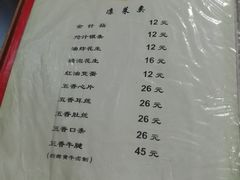 凉菜类
金针菇 12 元
炝汁银条 12 元
油炸花生 12 元
烧泡花生 16 元
红油变蛋 12 元
五香心片 26 元
五香耳丝 26 元
五香肚丝 26 元
五香口条 26 元
五香牛腱 45 元